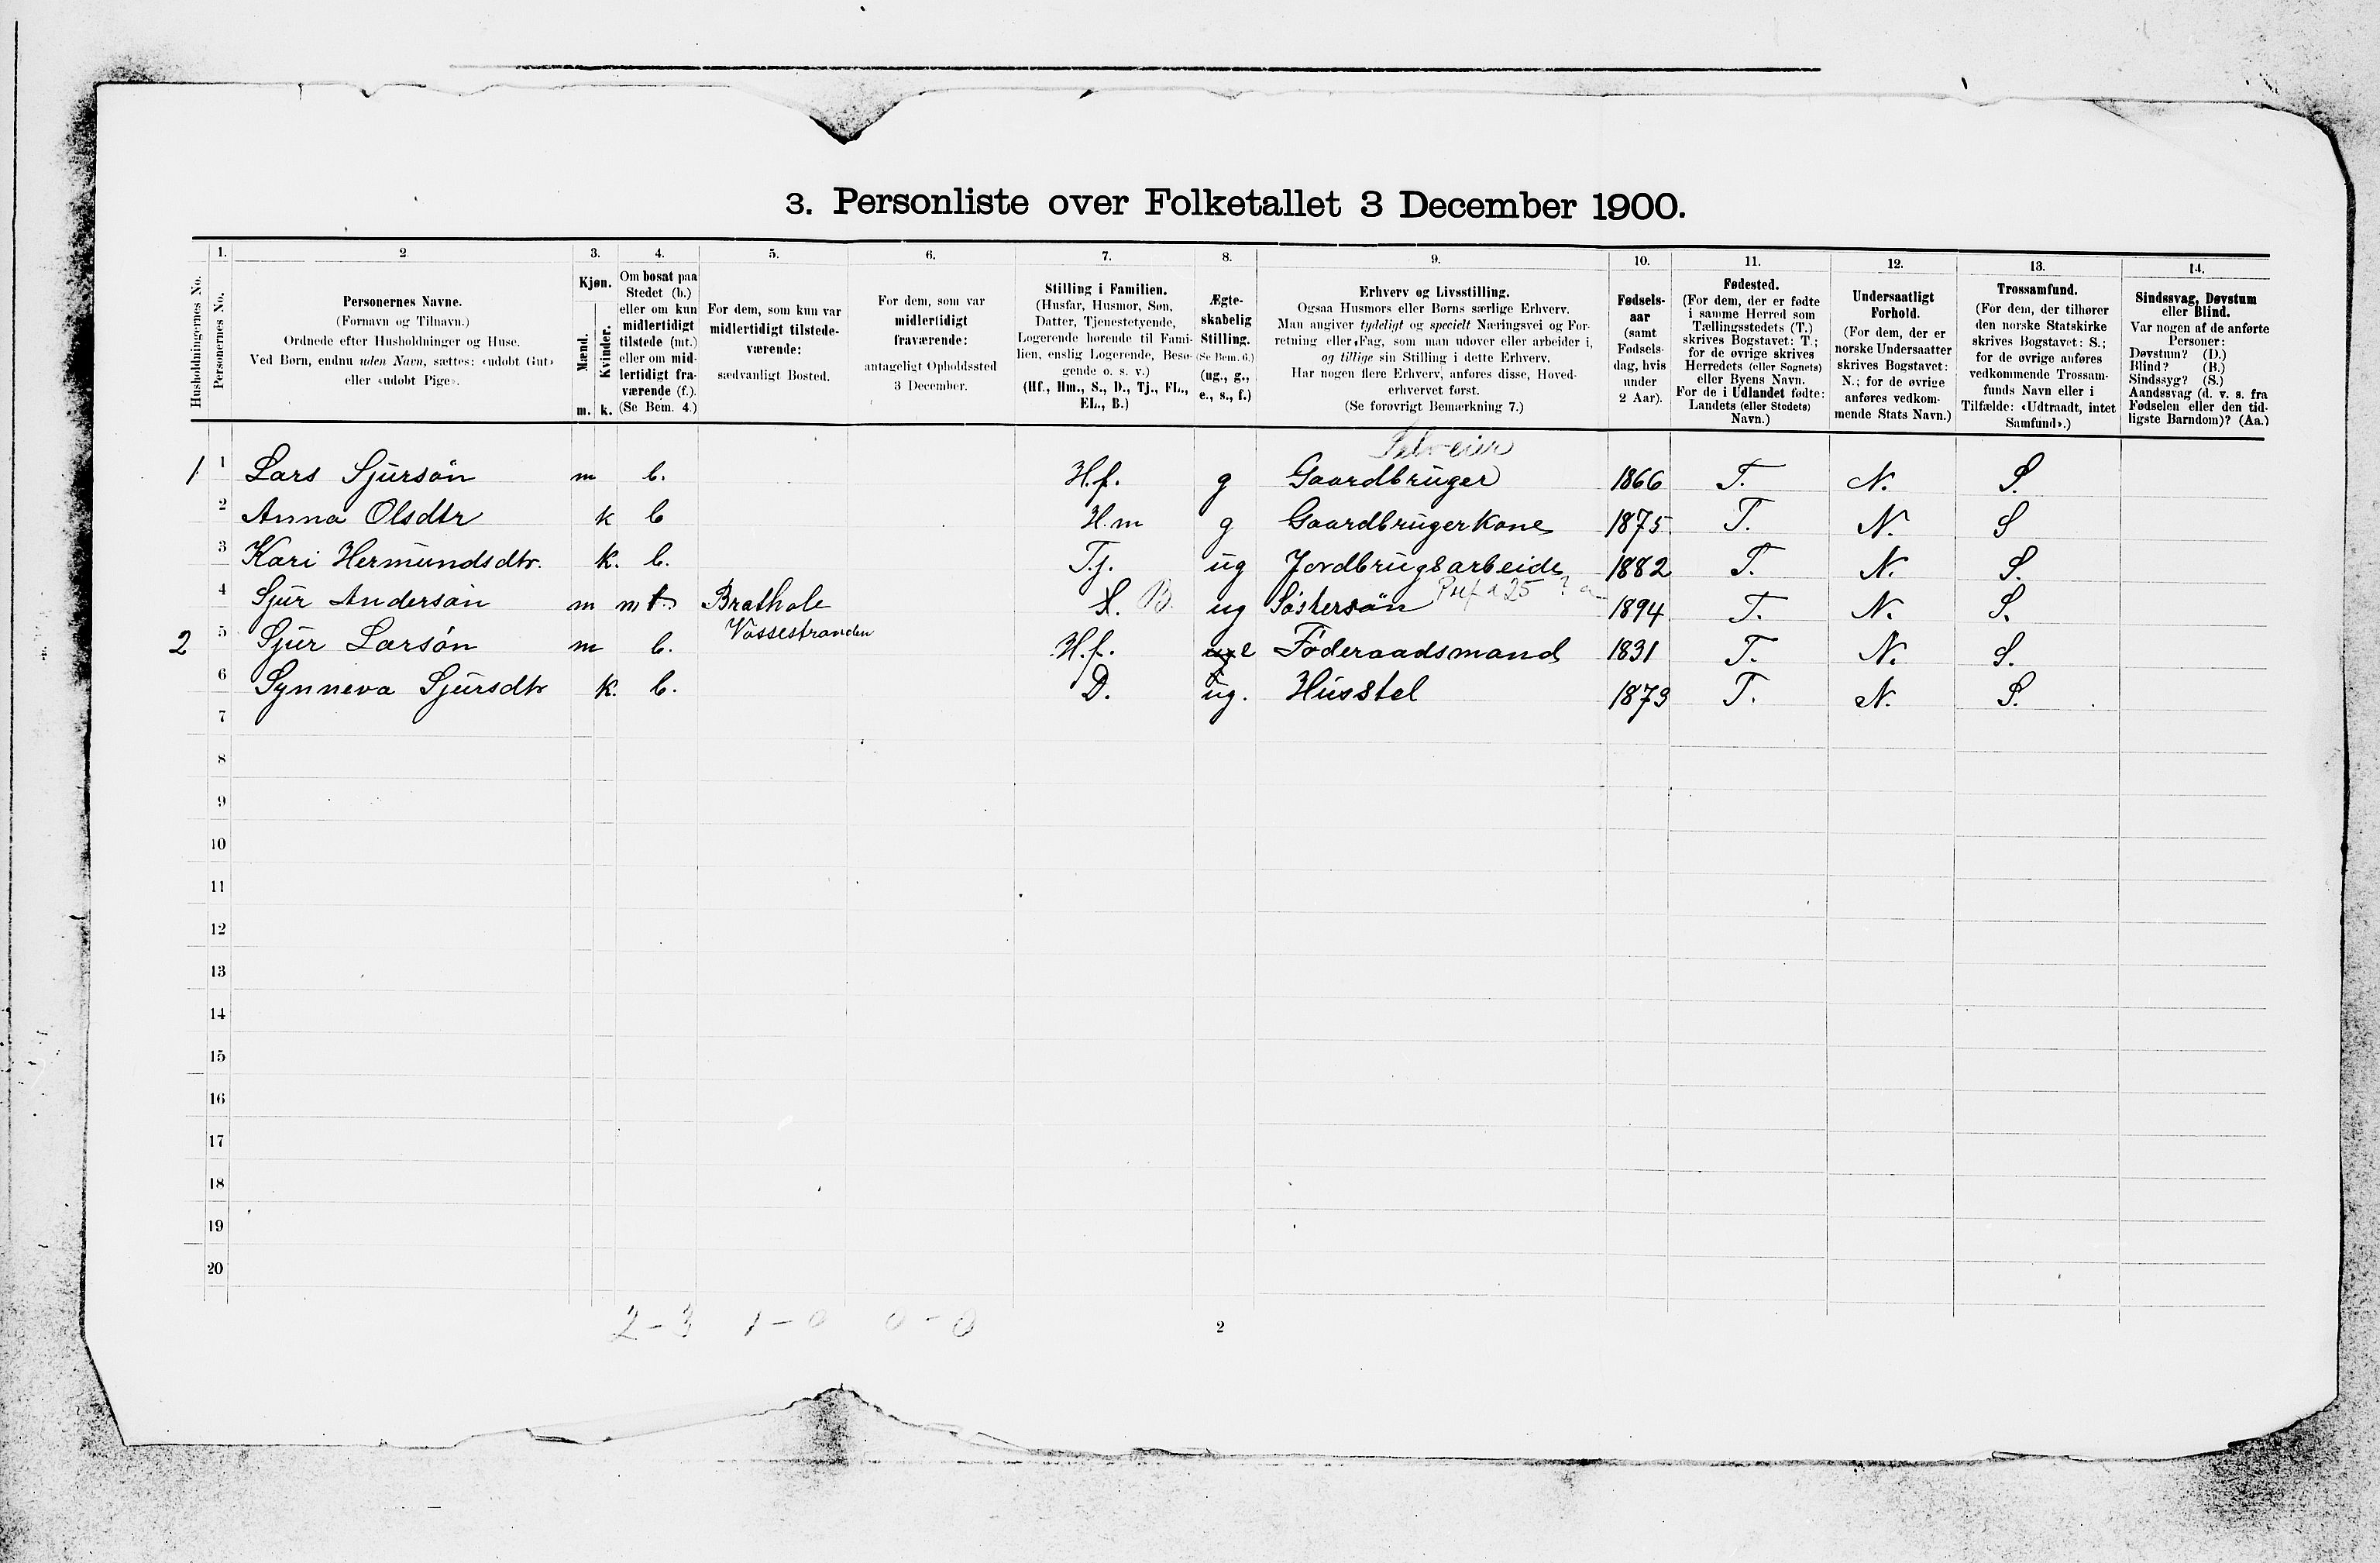 3. Personliste over Folketallet 3 December 1900.
Husholdningernes No.
1.
Personernes No.
2
Personernes Navne.
(Fornavn og Tilnavn.)
Ordnede efter Husholdninger og Huse.
Ved Børn, endnu uden Navn, sættes: «udøbt Gut»
eller «udøbt Pige».
3.
Kjøn.
Mænd.
Kvinder.
m. k.
4.
Om bosat paa
Stedet (b.)
eller om kun
midlertidigt
tilstede (mt.)
eller om mid-
lertidigt fra-
værende (f.).
(Se Bem. 4.)
5.
For dem, som kun var
midlertidigt tilstede-
værende:
sædvanligt Bosted.
6.
For dem, som var
midlertidigt
fraværende:
antageligt Opholdssted
3 December.
7.
Stilling i Familien.
(Husfar, Husmor, Søn,
Datter, Tjenestetyende,
Logerende hørende til Fami-
lien, enslig Logerende, Besø-
gende o. s. v.)
(Hf., Hm., S., D., Tj., FL.,
EL., B.)
8.
Ægte-
skabelig
Stilling.
(Se Bem. 6.)
(ug., g.,
e., s., f.)
9.
Erhverv og Livsstilling.
Ogsaa Husmors eller Børns særlige Erhverv.
Man angiver tydeligt og specielt Næringsvei og For-
retning eller Fag, som man udøver eller arbeider i,
og tillige sin Stilling i dette Erhverv.
Har nogen flere Erhverv, anføres disse, Hoved-
erhvervet først.
(Se forøvrigt Bemærkning 7.)
10.
Fødsels-
aar
(samt
Fødsels-
dag, hvis
under
2 Aar).
11.
Fødested.
(For dem, der er fødte
i samme Herred som
Tællingsstedets (T.)
skrives Bogstavet: T.;
for de øvrige skrives
Herredets (eller Sognets)
eller Byens Navn.
For de i Udlandet fødte:
Landets (eller Stedets)
Navn.)
12.
Undersaatligt
Forhold.
(For dem, der er
norske Undersaatter
skrives Bogstavet:
N.; for de øvrige
anføres vedkom-
mende Stats Navn.)
13.
Trossamfund.
(For dem, der tilhører
den norske Statskirke
skrives Bogstavet: S.;
for de øvrige anføres
vedkommende Trossam-
funds Navn eller i
Tilfælde: «Udtraadt, intet
Samfund».)
14.
Sindssvag, Døvstum
eller Blind.
Var nogen af de anførte
Personer:
Døvstum? (D.)
Blind? (B.)
Sindssyg? (S.)
Aandssvag (d. v. s. fra
Fødselen eller den tid-
ligste Barndom)? (Aa.)
Selveier
1 1 Lars Sjursön m b. H.f. g Gaardbruger 1866 T. N. S.
2 Anna Olsdtr k b H.m g Gaardbrugerkone 1875 T. N. S
3 Kari Hermundsdtr. k. b. Tj. ug Jordbrugsarbeide 1882 T. N. S.
4 Sjur Andersön m mt. Brathole S. B. ug Söstersön 1894 T. N. S.
Vossestranden
2 5 Sjur Larsön m b. H.f. e Föderaadsmand 1831 T. N. S.
6 Synneva Sjursdtr k. b. D. ug. Husstel 1873 T. N. S.
7
8
9
10
11
12
13
14
15
16
17
18
19
20
2-3 1-0 0-0
2